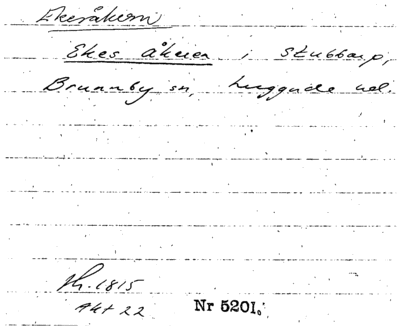 Ekeråkern
Ekes åkern i Stubbarp,
Brunnby sn, Luggude hd.
1815
Akt 22 Nr 5201.